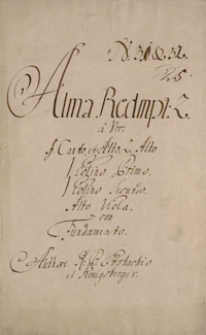 Alma Redmpt: 2.
à Voc:
Canto, et Alto, 2. Alto
Violino Primo.
Violino Secundo.
Alto Viola.
con
Fundamento.
Authore P. Eustachio
et Königsberger.